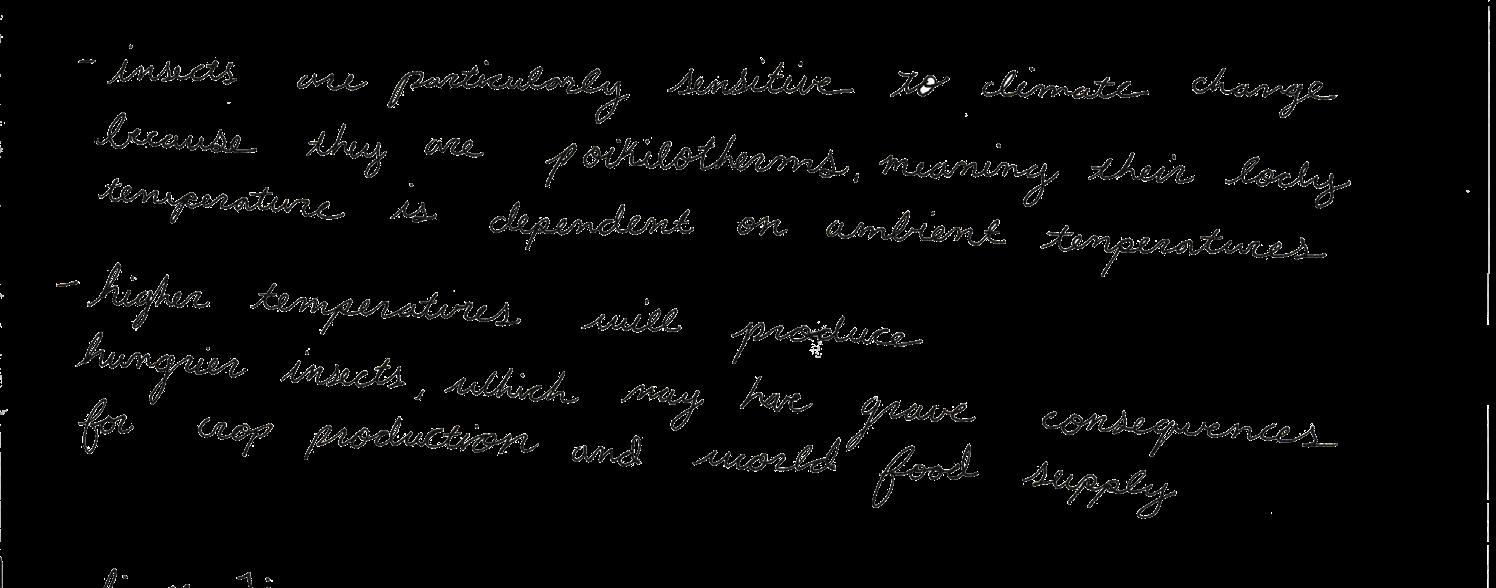 - insects are particularly sensitive to climate change
because they are poikilotherms, meaning their body
temperature is dependent on ambient temperatures
- higher temperatures will produce
hungrier insects, which may have grave consequences
for crop production and world food supply